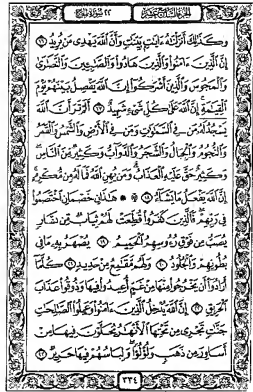 الجزء السابع عشر ٢٢ سورة الحج
وَكَذَٰلِكَ أَنزَلْنَٰهُ ءَايَٰتٍۭ بَيِّنَٰتٍ وَأَنَّ ٱللَّهَ يَهْدِى مَن يُرِيدُ ١٦
إِنَّ ٱلَّذِينَ ءَامَنُوا۟ وَٱلَّذِينَ هَادُوا۟ وَٱلصَّٰبِـِٔينَ وَٱلنَّصَٰرَىٰ
وَٱلْمَجُوسَ وَٱلَّذِينَ أَشْرَكُوٓا۟ إِنَّ ٱللَّهَ يَفْصِلُ بَيْنَهُمْ يَوْمَ
ٱلْقِيَٰمَةِ إِنَّ ٱللَّهَ عَلَىٰ كُلِّ شَىْءٍ شَهِيدٌ ١٧ أَلَمْ تَرَ أَنَّ ٱللَّهَ
يَسْجُدُ لَهُۥ مَن فِى ٱلسَّمَٰوَٰتِ وَمَن فِى ٱلْأَرْضِ وَٱلشَّمْسُ وَٱلْقَمَرُ
وَٱلنُّجُومُ وَٱلْجِبَالُ وَٱلشَّجَرُ وَٱلدَّوَآبُّ وَكَثِيرٌ مِّنَ ٱلنَّاسِ
وَكَثِيرٌ حَقَّ عَلَيْهِ ٱلْعَذَابُ وَمَن يُهِنِ ٱللَّهُ فَمَا لَهُۥ مِن مُّكْرِمٍ
إِنَّ ٱللَّهَ يَفْعَلُ مَا يَشَآءُ ۩ ١٨ هَٰذَانِ خَصْمَانِ ٱخْتَصَمُوا۟
فِى رَبِّهِمْ فَٱلَّذِينَ كَفَرُوا۟ قُطِّعَتْ لَهُمْ ثِيَابٌ مِّن نَّارٍ
يُصَبُّ مِن فَوْقِ رُءُوسِهِمُ ٱلْحَمِيمُ ١٩ يُصْهَرُ بِهِۦ مَا فِى
بُطُونِهِمْ وَٱلْجُلُودُ ٢٠ وَلَهُم مَّقَٰمِعُ مِنْ حَدِيدٍ ٢١ كُلَّمَآ
أَرَادُوٓا۟ أَن يَخْرُجُوا۟ مِنْهَا مِنْ غَمٍّ أُعِيدُوا۟ فِيهَا وَذُوقُوا۟ عَذَابَ
ٱلْحَرِيقِ ٢٢ إِنَّ ٱللَّهَ يُدْخِلُ ٱلَّذِينَ ءَامَنُوا۟ وَعَمِلُوا۟ ٱلصَّٰلِحَٰتِ
جَنَّٰتٍ تَجْرِى مِن تَحْتِهَا ٱلْأَنْهَٰرُ يُحَلَّوْنَ فِيهَا مِنْ
أَسَاوِرَ مِن ذَهَبٍ وَلُؤْلُؤًا وَلِبَاسُهُمْ فِيهَا حَرِيرٌ ٢٣
٣٣٤